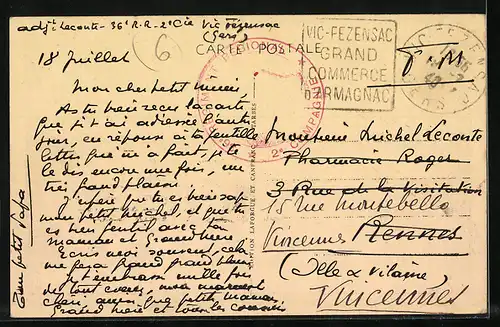 adjt Leconte - 36e R.R - 2e Cie Vic Fezensac
(Gers)
6
CARTE POSTALE
VIC-FEZENSAC
GRAND
COMMERCE
D'ARMAGNAC
VIC-FEZENSAC
GERS
F M
RÉGIONAL
2e COMPAGNIE
18 Juillet
Mon cher petit Mimi,
As tu bien reçu la carte
que je t'ai adressée l'autre
jour, en réponse à ta gentille
lettre que m'a fait, je te
le dis encore une fois, un
très grand plaisir.
J'espère que tu es bien sage
mon petit Michel, et que tu
es bien gentil avec ta
maman et Grand'mère
Ecris moi souvent, cela
me fera grand plaisir
Je t'embrasse mille fois
de tout cœur, mon
chéri, ainsi que petite maman,
Grand'mère et tous les cousins
Ton petit Papa
Monsieur Michel Leconte
Pharmacie Roger
3 Rue de la Visitation
18 rue Montebello
Vincennes Rennes
(Ille & Vilaine)
Vincennes